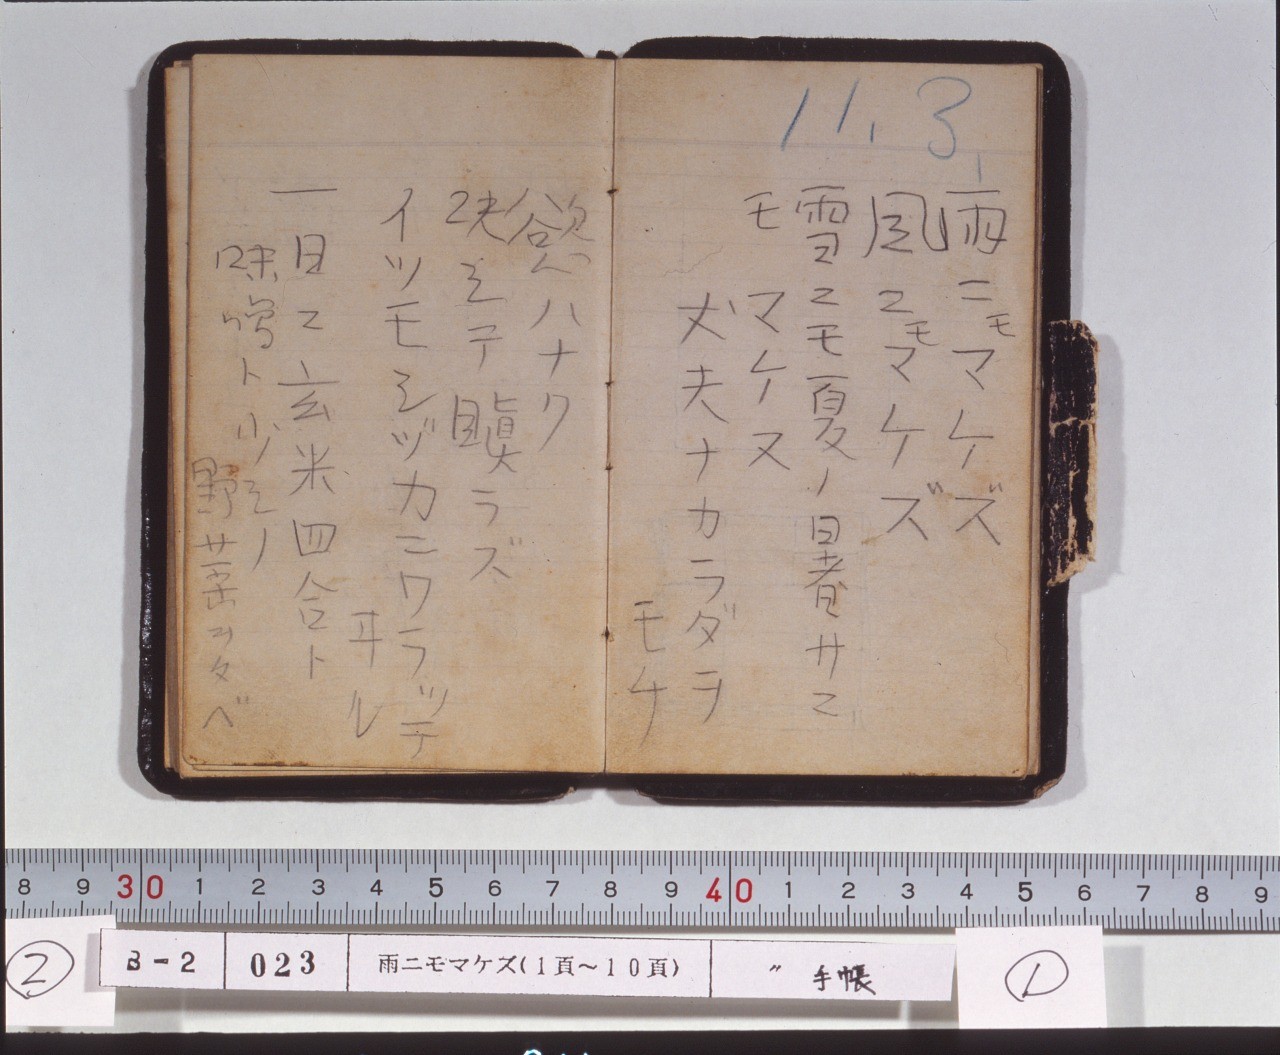 11.3.
雨ニモマケズ
風ニモマケズ
雪ニモ夏ノ暑サニ
モ マケヌ
丈夫ナカラダヲ
モチ
慾ハナク
決シテ瞋ラズ
イツモシヅカニワラッテ
ヰル
一日ニ玄米四合ト
味噌ト少シノ
野菜ヲタベ
8 9 30 1 2 3 4 5 6 7 8 9 40 1 2 3 4 5 6 7 8 9
②
B-2 023 雨ニモマケズ(1頁〜10頁) 〃 手帳
①